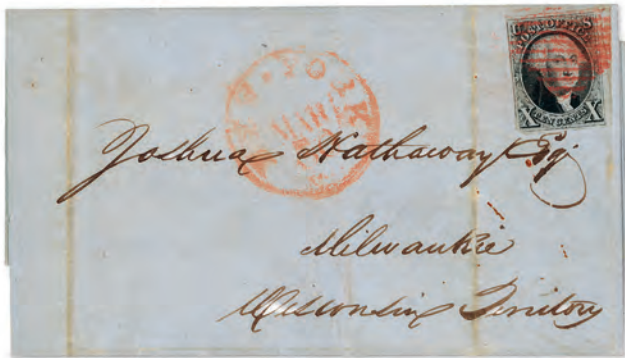 POST OFFICE
X TEN CENTS X
NEW-YORK
MAR
Joshua Hathaway Esq
Milwaukie
Wisconsin Territory